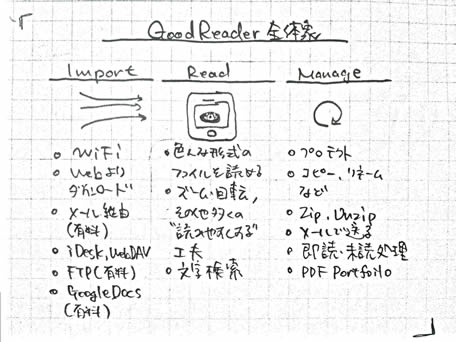 GoodReader 全体象
Import
WiFi
Webより
ダウンロード
メール経由
(有料)
iDesk, WebDAV
FTP(有料)
GoogleDocs
(有料)
Read
色んな形式の
ファイルを読める
ズーム・回転,
その他多くの
"読みやすくする"
工夫
文字検索
Manage
プロテクト
コピー, リネーム
など
Zip, Unzip
メールで送る
即読・未読処理
PDF Portfoilo